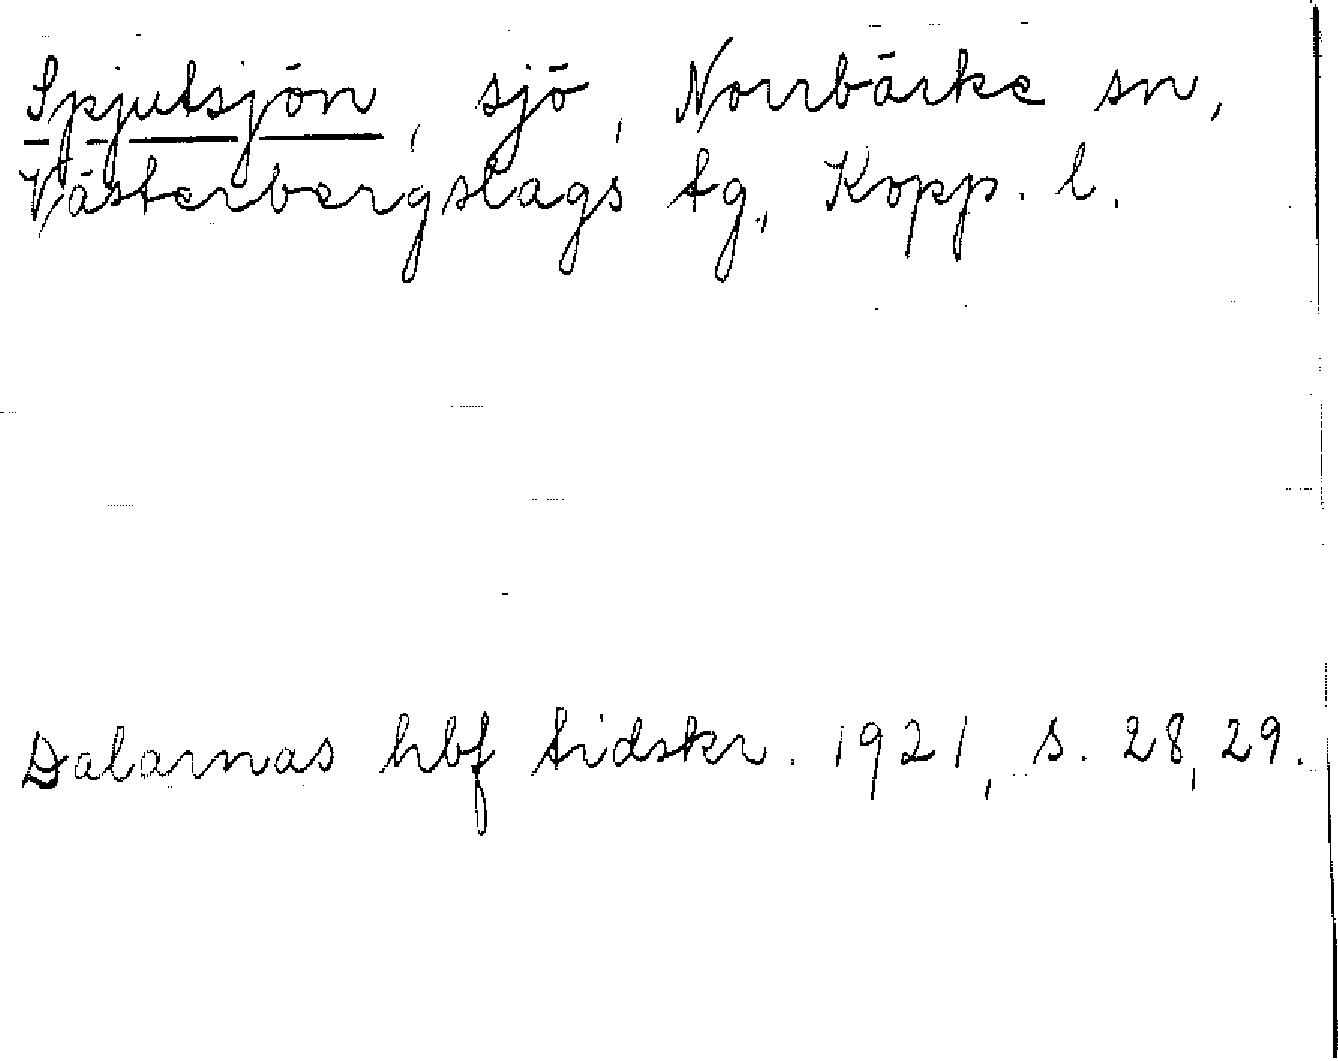 Spjutsjön, sjö, Norrbärke sn,
Västerbergslags tg, Kopp. l.
Dalarnas hbf tidskr. 1921, s. 28, 29.